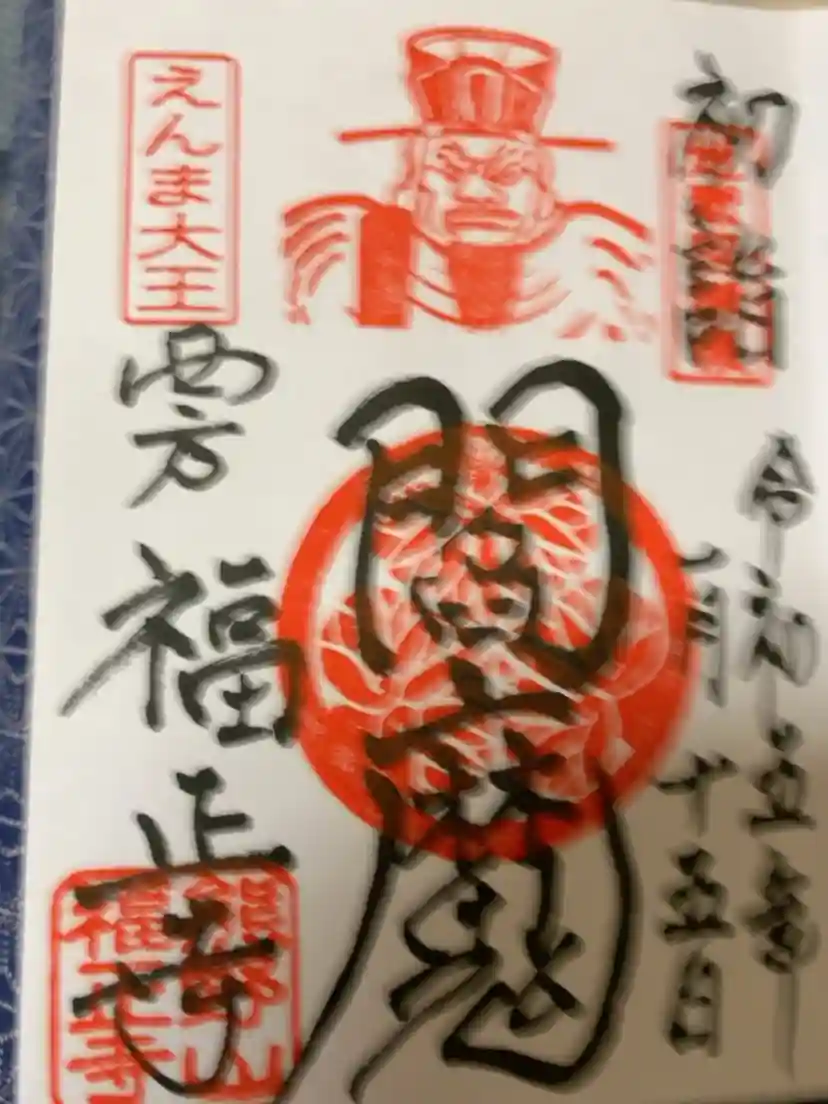 初
令和五年
一月十五日
閻魔
えんま大王
西方 福正寺
熊野山
福正寺